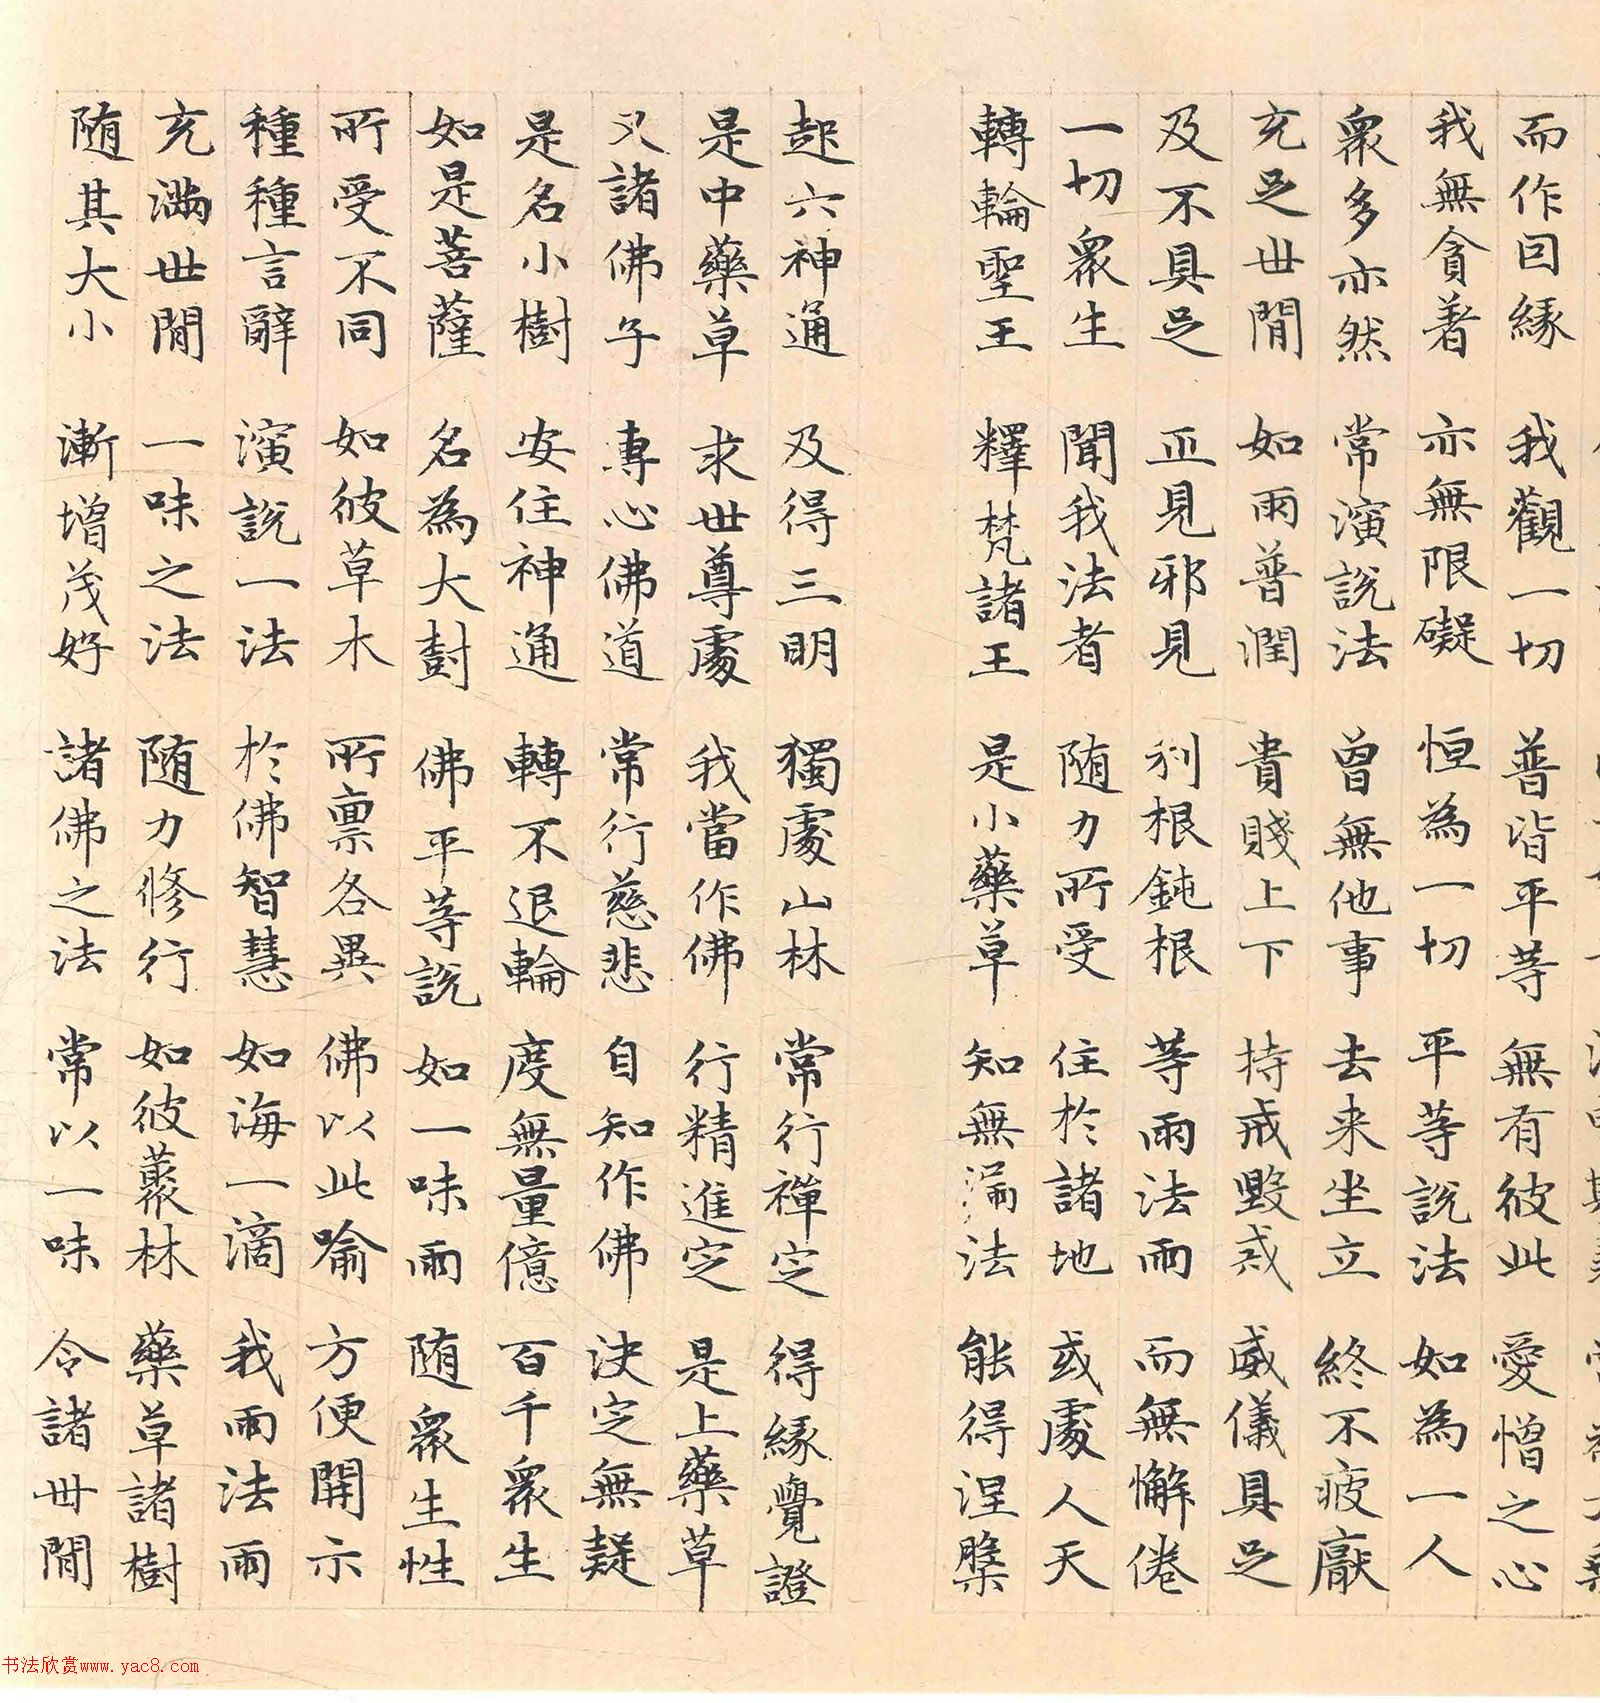 而作因緣 我觀一切 普皆平等 無有彼此 愛憎之心
我無貪著 亦無限礙 恒為一切 平等說法 如為一人
眾多亦然 常演說法 曾無他事 去来坐立 終不疲厭
充足世間 如雨普潤 貴賤上下 持戒毀戒 威儀具足
及不具足 正見邪見 利根鈍根 等雨法雨 而無懈倦
一切眾生 聞我法者 随力所受 住於諸地 或處人天
轉輪聖王 釋梵諸王 是小藥草 知無漏法 能得涅槃
起六神通 及得三明 獨處山林 常行禪定 得緣覺證
是中藥草 求世尊處 我當作佛 行精進定 是上藥草
又諸佛子 專心佛道 常行慈悲 自知作佛 決定無疑
是名小樹 安住神通 轉不退輪 度無量億 百千眾生
如是菩薩 名為大樹 佛平等說 如一味雨 随眾生性
所受不同 如彼草木 所稟各異 佛以此喻 方便開示
種種言辭 演說一法 於佛智慧 如海一滴 我雨法雨
充滿世間 一味之法 随力修行 如彼叢林 藥草諸樹
随其大小 漸增茂好 諸佛之法 常以一味 令諸世間
书法欣赏www.yac8.com